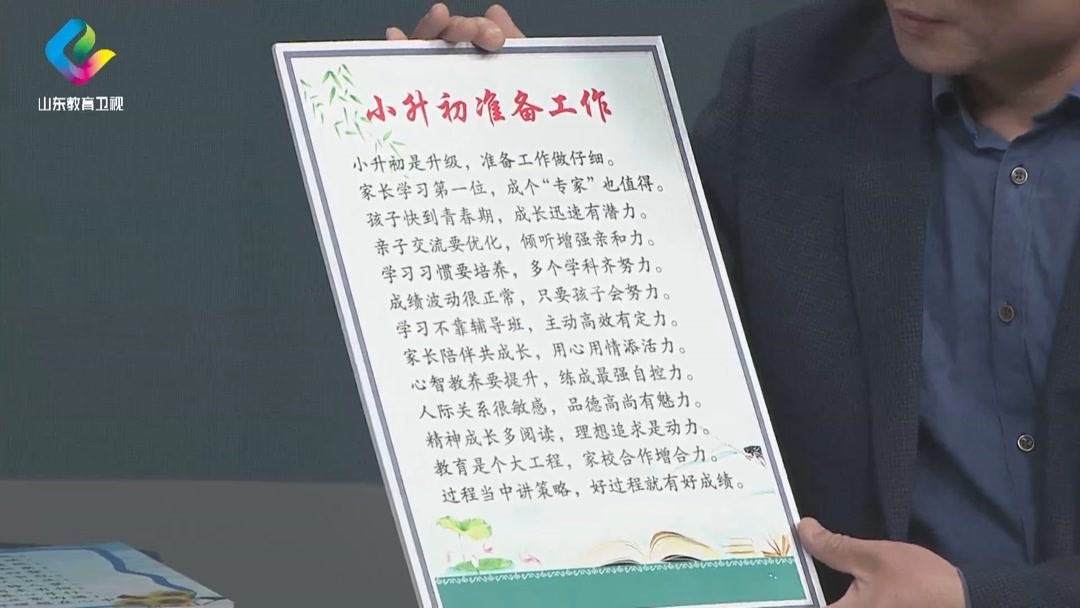 山东教育卫视
小升初准备工作
小升初是升级，准备工作做仔细。
家长学习第一位，成个“专家”也值得。
孩子快到青春期，成长迅速有潜力。
亲子交流要优化，倾听增强亲和力。
学习习惯要培养，多个学科齐努力。
成绩波动很正常，只要孩子会努力。
学习不靠辅导班，主动高效有定力。
家长陪伴共成长，用心用情添活力。
心智教养要提升，练成最强自控力。
人际关系很敏感，品德高尚有魅力。
精神成长多阅读，理想追求是动力。
教育是个大工程，家校合作增合力。
过程当中讲策略，好过程就有好成绩。